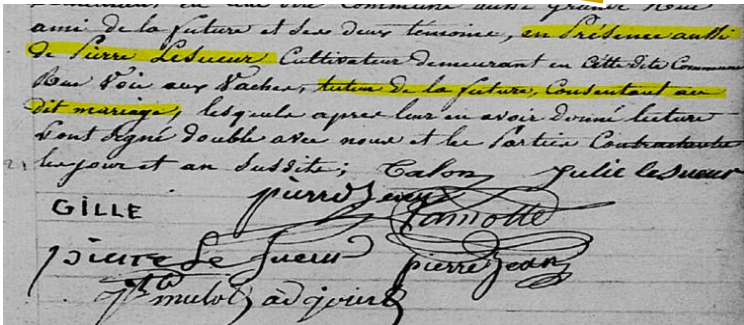 ami de la future et ses deux témoins, en Présence aussi
de Pierre LeSueur Cultivateur demeurant en Cette dite Commune
Rue Voie aux Vaches, tuteur de la future, Consentant au
dit mariage, lesquels apres leur en avoir donné lecture
l'ont Signé double avec nous et les Parties Contractantes
les jour et an Susdits; Talon Julie lesueur
pierre Jean
GILLE Lamotte
pierre Le Sueur pierre Jean
mulot adjoint